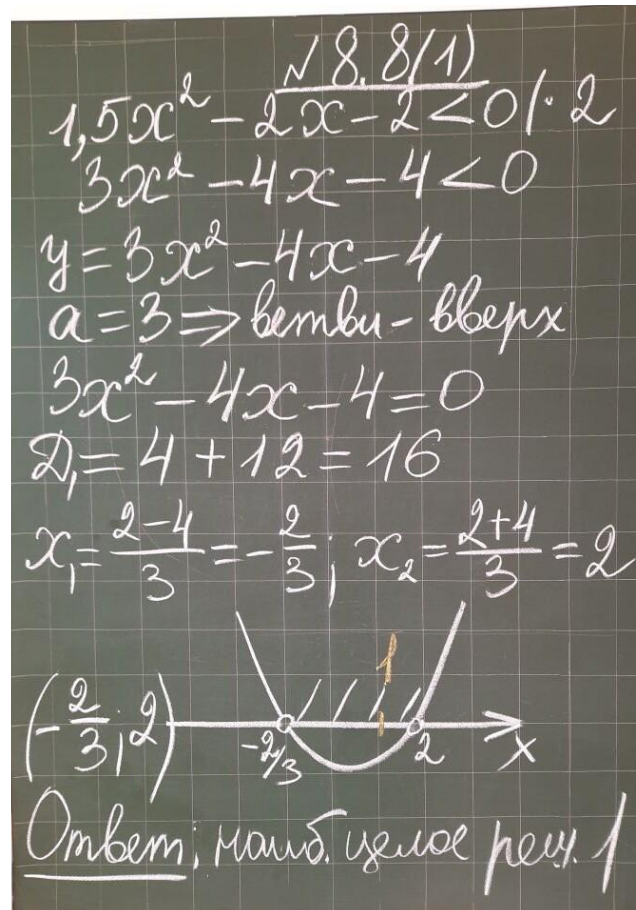 № 8.8(1)
1,5x² - 2x - 2 < 0 | · 2
3x² - 4x - 4 < 0
y = 3x² - 4x - 4
a = 3 ⇒ ветви - вверх
3x² - 4x - 4 = 0
Д₁ = 4 + 12 = 16
x₁ = (2-4)/3 = -2/3; x₂ = (2+4)/3 = 2
1
(-2/3; 2) -2/3 2 x
Ответ: наиб. целое реш. 1